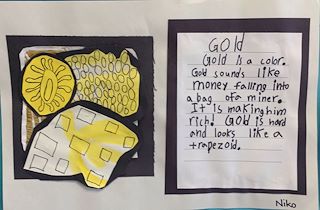 Gold
Gold is a color.
Gold sounds like
money falling into
a bag of a miner.
It is making him
rich! Gold is hard
and looks like a
trapezoid.
Niko